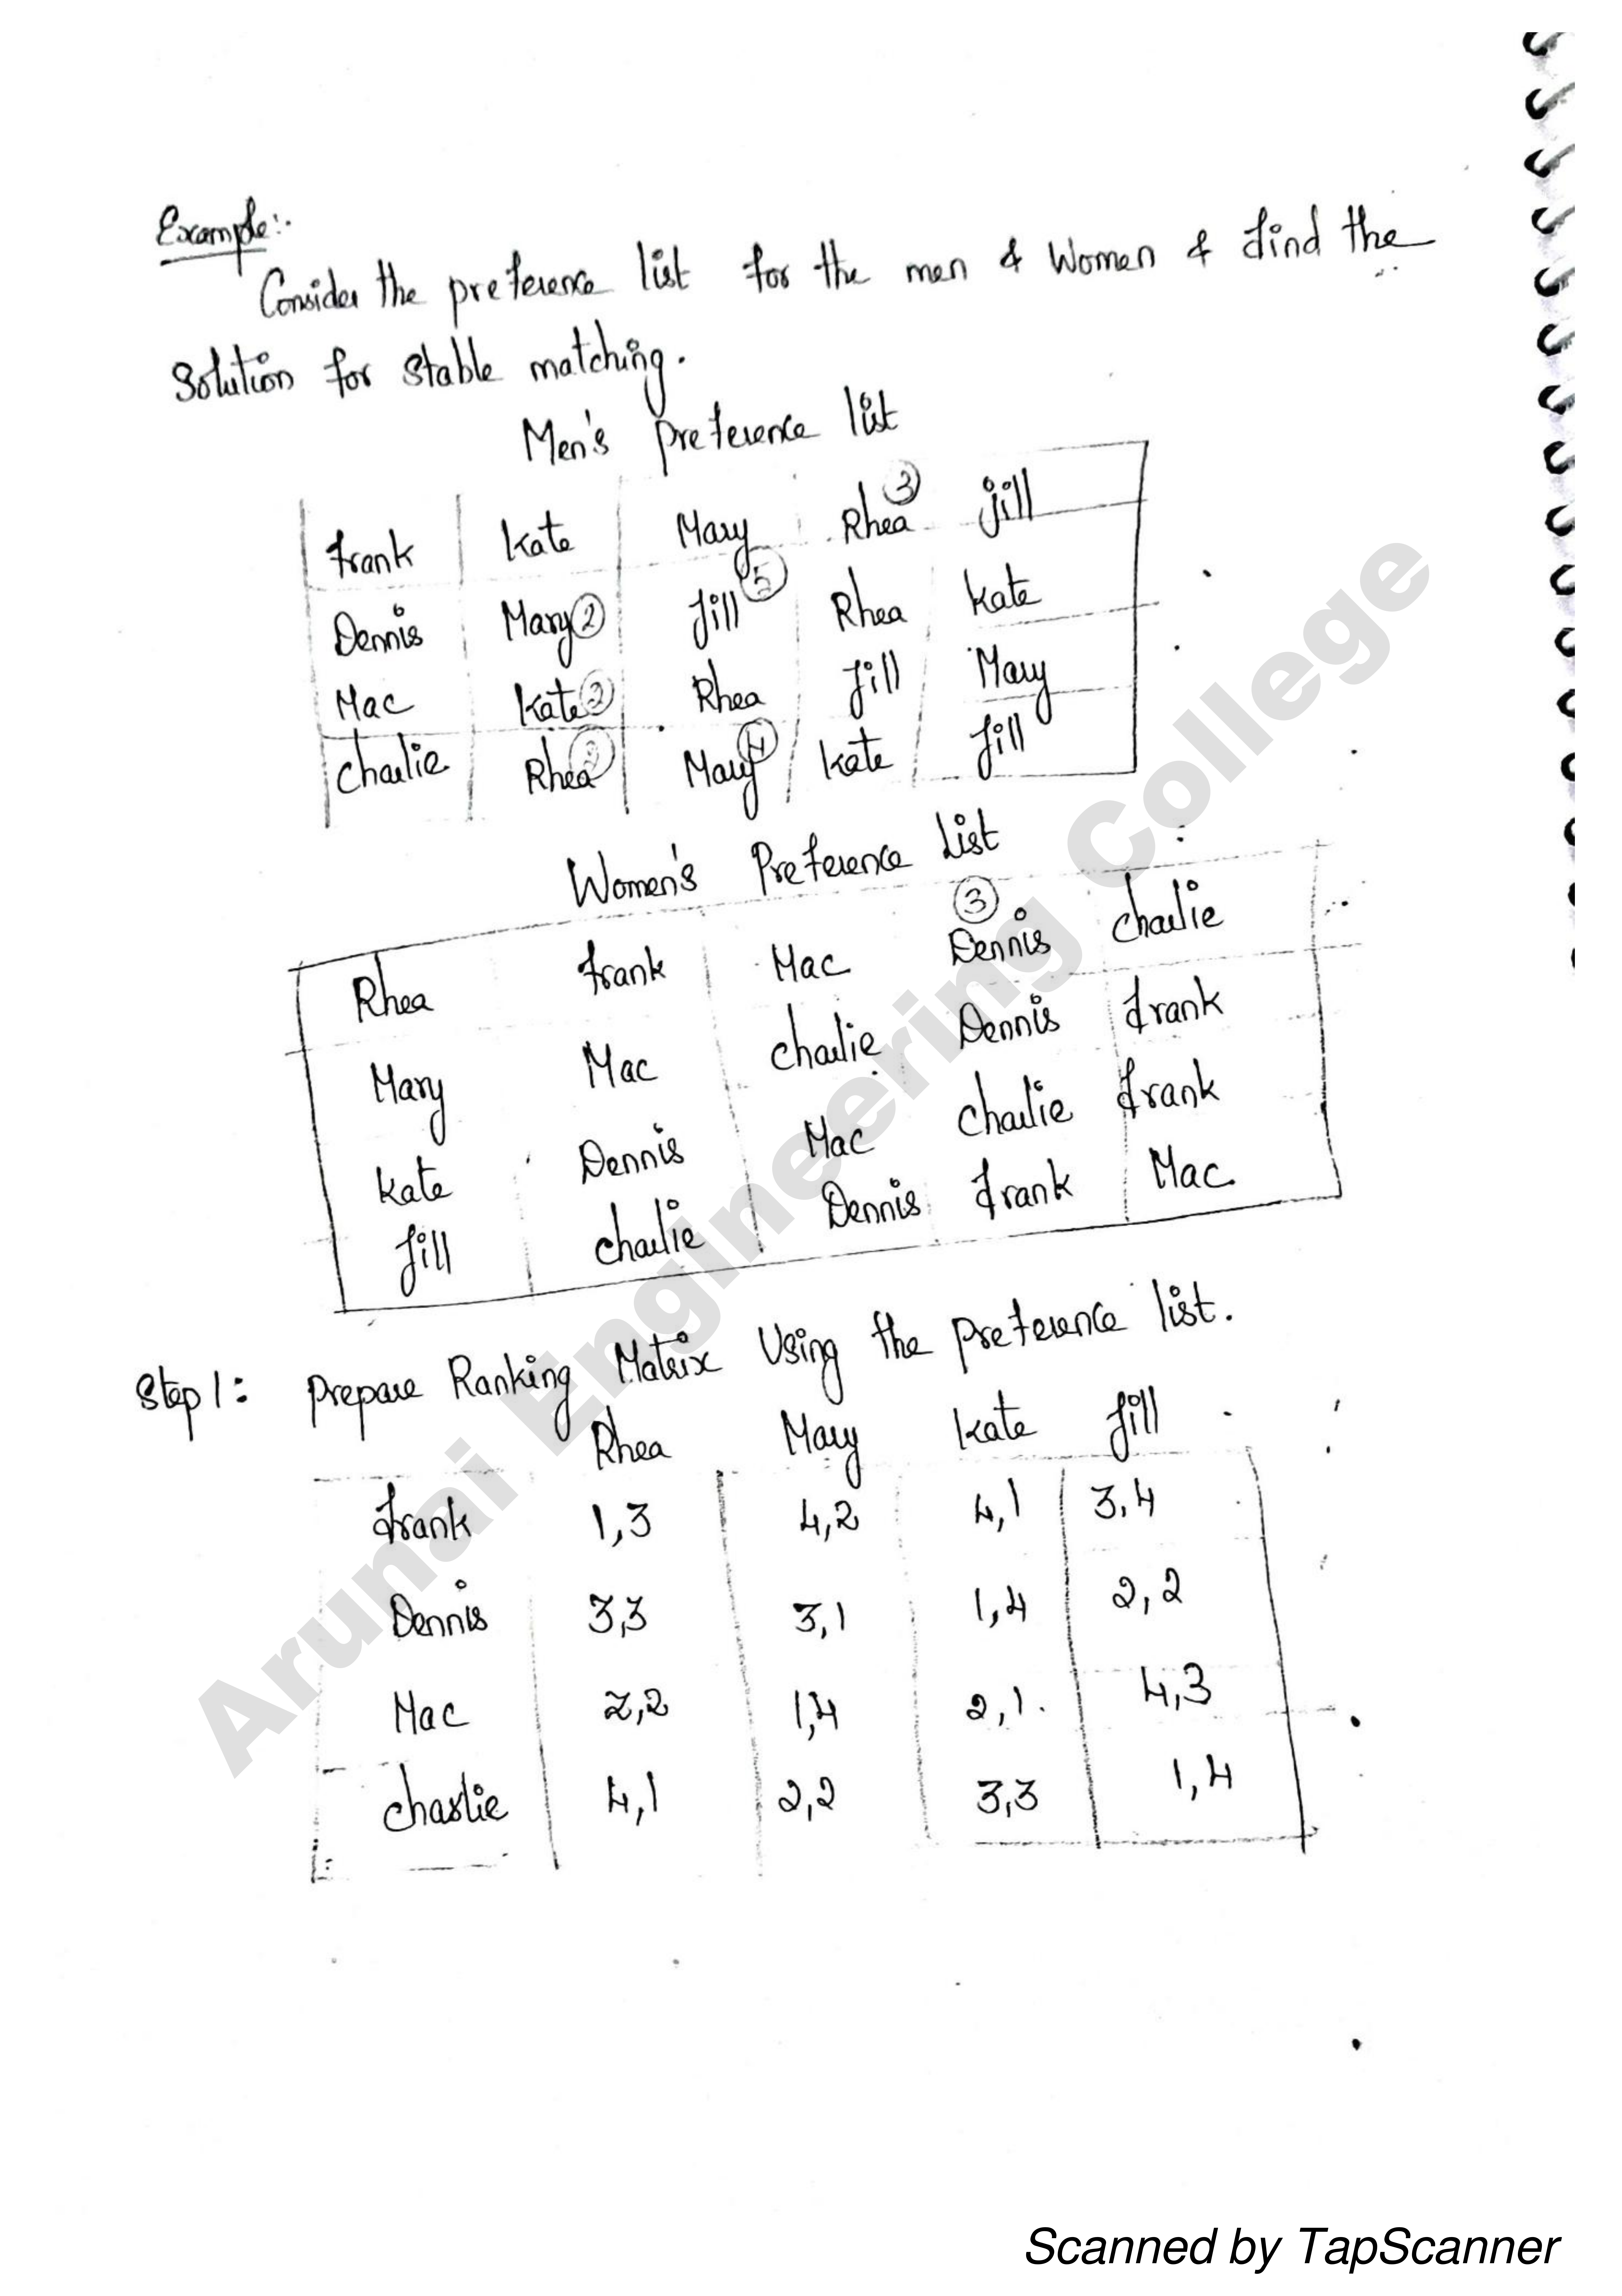 Example:-
Consider the preference list for the men & Women & find the
Solution for stable matching.
Men's preference list
frank Kate Mary Rhea ③ Jill
Dennis Mary ② Jill ⑤ Rhea Kate
Mac Kate ② Rhea Jill Mary
charlie Rhea Mary ④ Kate Jill
Women's Preference List
Rhea frank Mac ③ Dennis charlie
Mary Mac charlie Dennis frank
Kate Dennis Mac charlie frank
Jill charlie Dennis frank Mac
Step 1: Prepare Ranking Matrix Using the preference list.
Rhea Mary Kate Jill
frank 1,3 4,2 4,1 3,4
Dennis 3,3 3,1 1,4 2,2
Mac 2,2 1,4 2,1. 4,3
charlie 4,1 2,2 3,3 1,4
Arunai Engineering College
Scanned by TapScanner